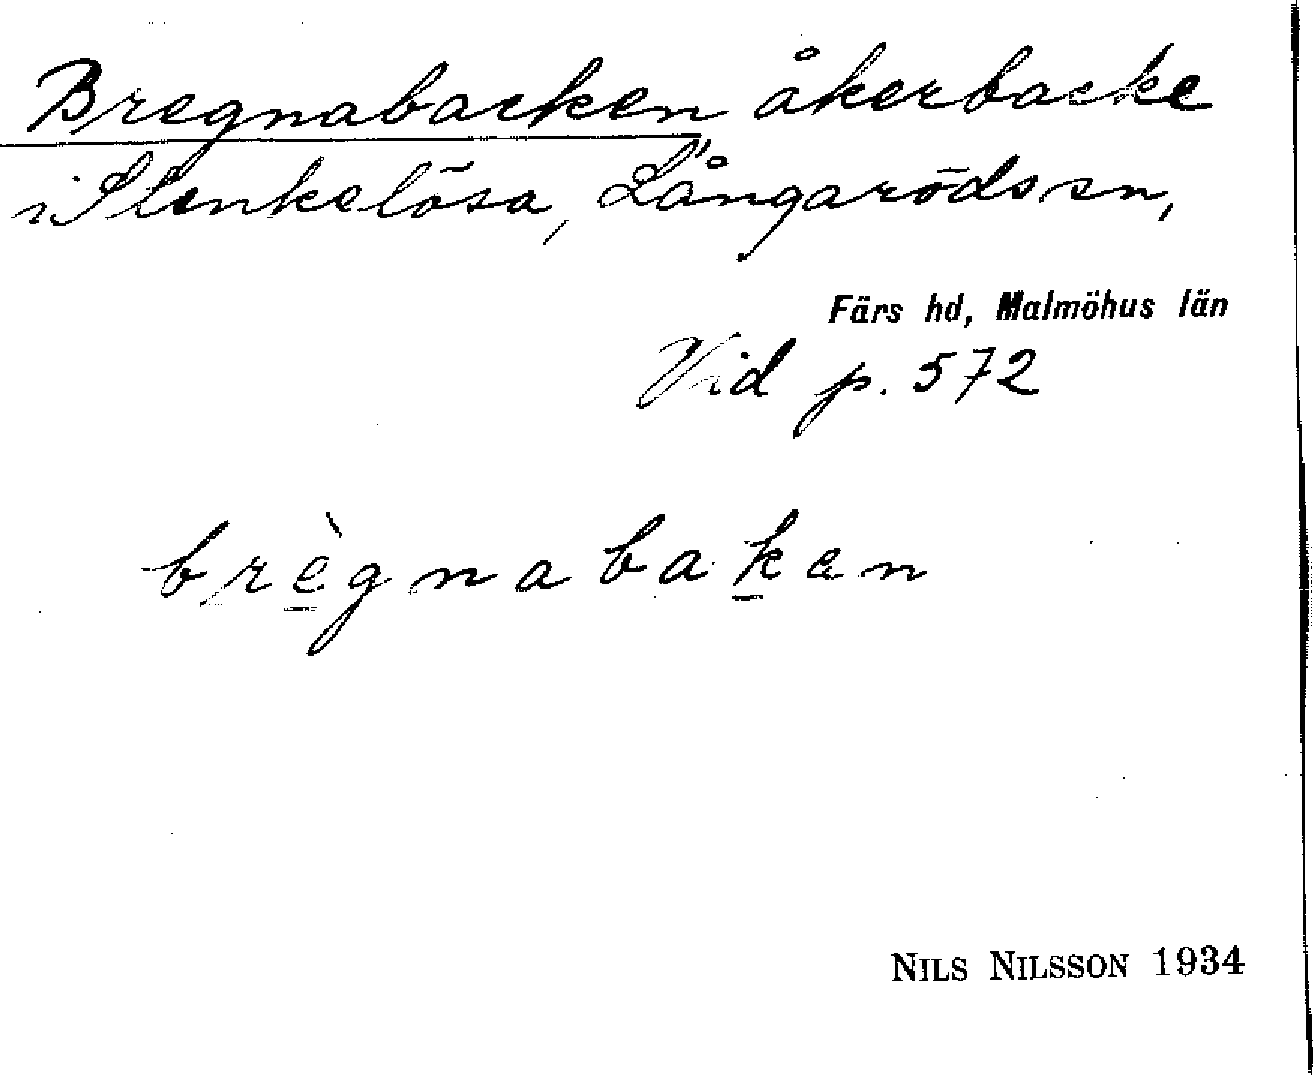 Bregnabacken åkerbacke
i Slenkelösa, Långaröds sn,
Färs hd, Malmöhus län
Vid p. 572
brègnabaken
NILS NILSSON 1934